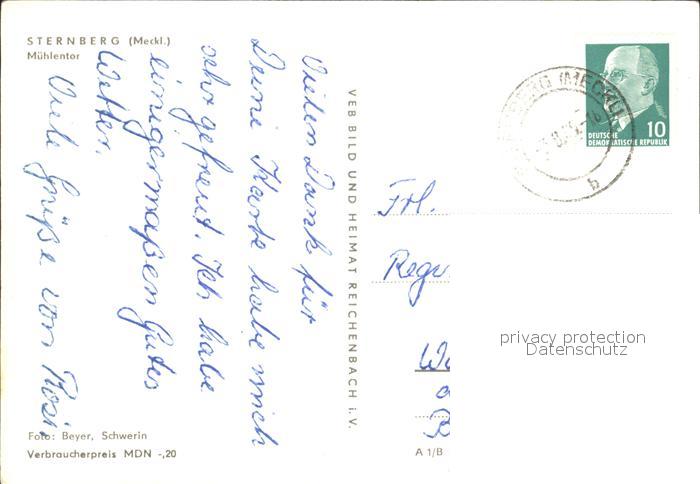 STERNBERG (Meckl.)
Mühlentor
Vielen Dank für
Deine Karte habe mich
sehr gefreut. Ich habe
einigermaßen Gutes
Wetter.
Viele Grüße von Rosi.
Foto: Beyer, Schwerin
Verbraucherpreis MDN -,20
VEB BILD UND HEIMAT REICHENBACH i. V.
A 1/B
(MECKL)
b
10
DEUTSCHE
DEMOKRATISCHE REPUBLIK
Frl.
privacy protection
Datenschutz